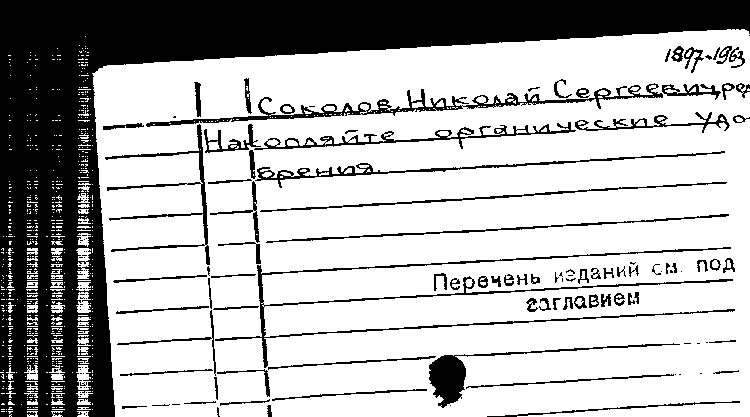 1897-1963
Соколов, Николай Сергеевич, ред
Накопляйте органические удо-
брения.
Перечень изданий см. под
заглавием